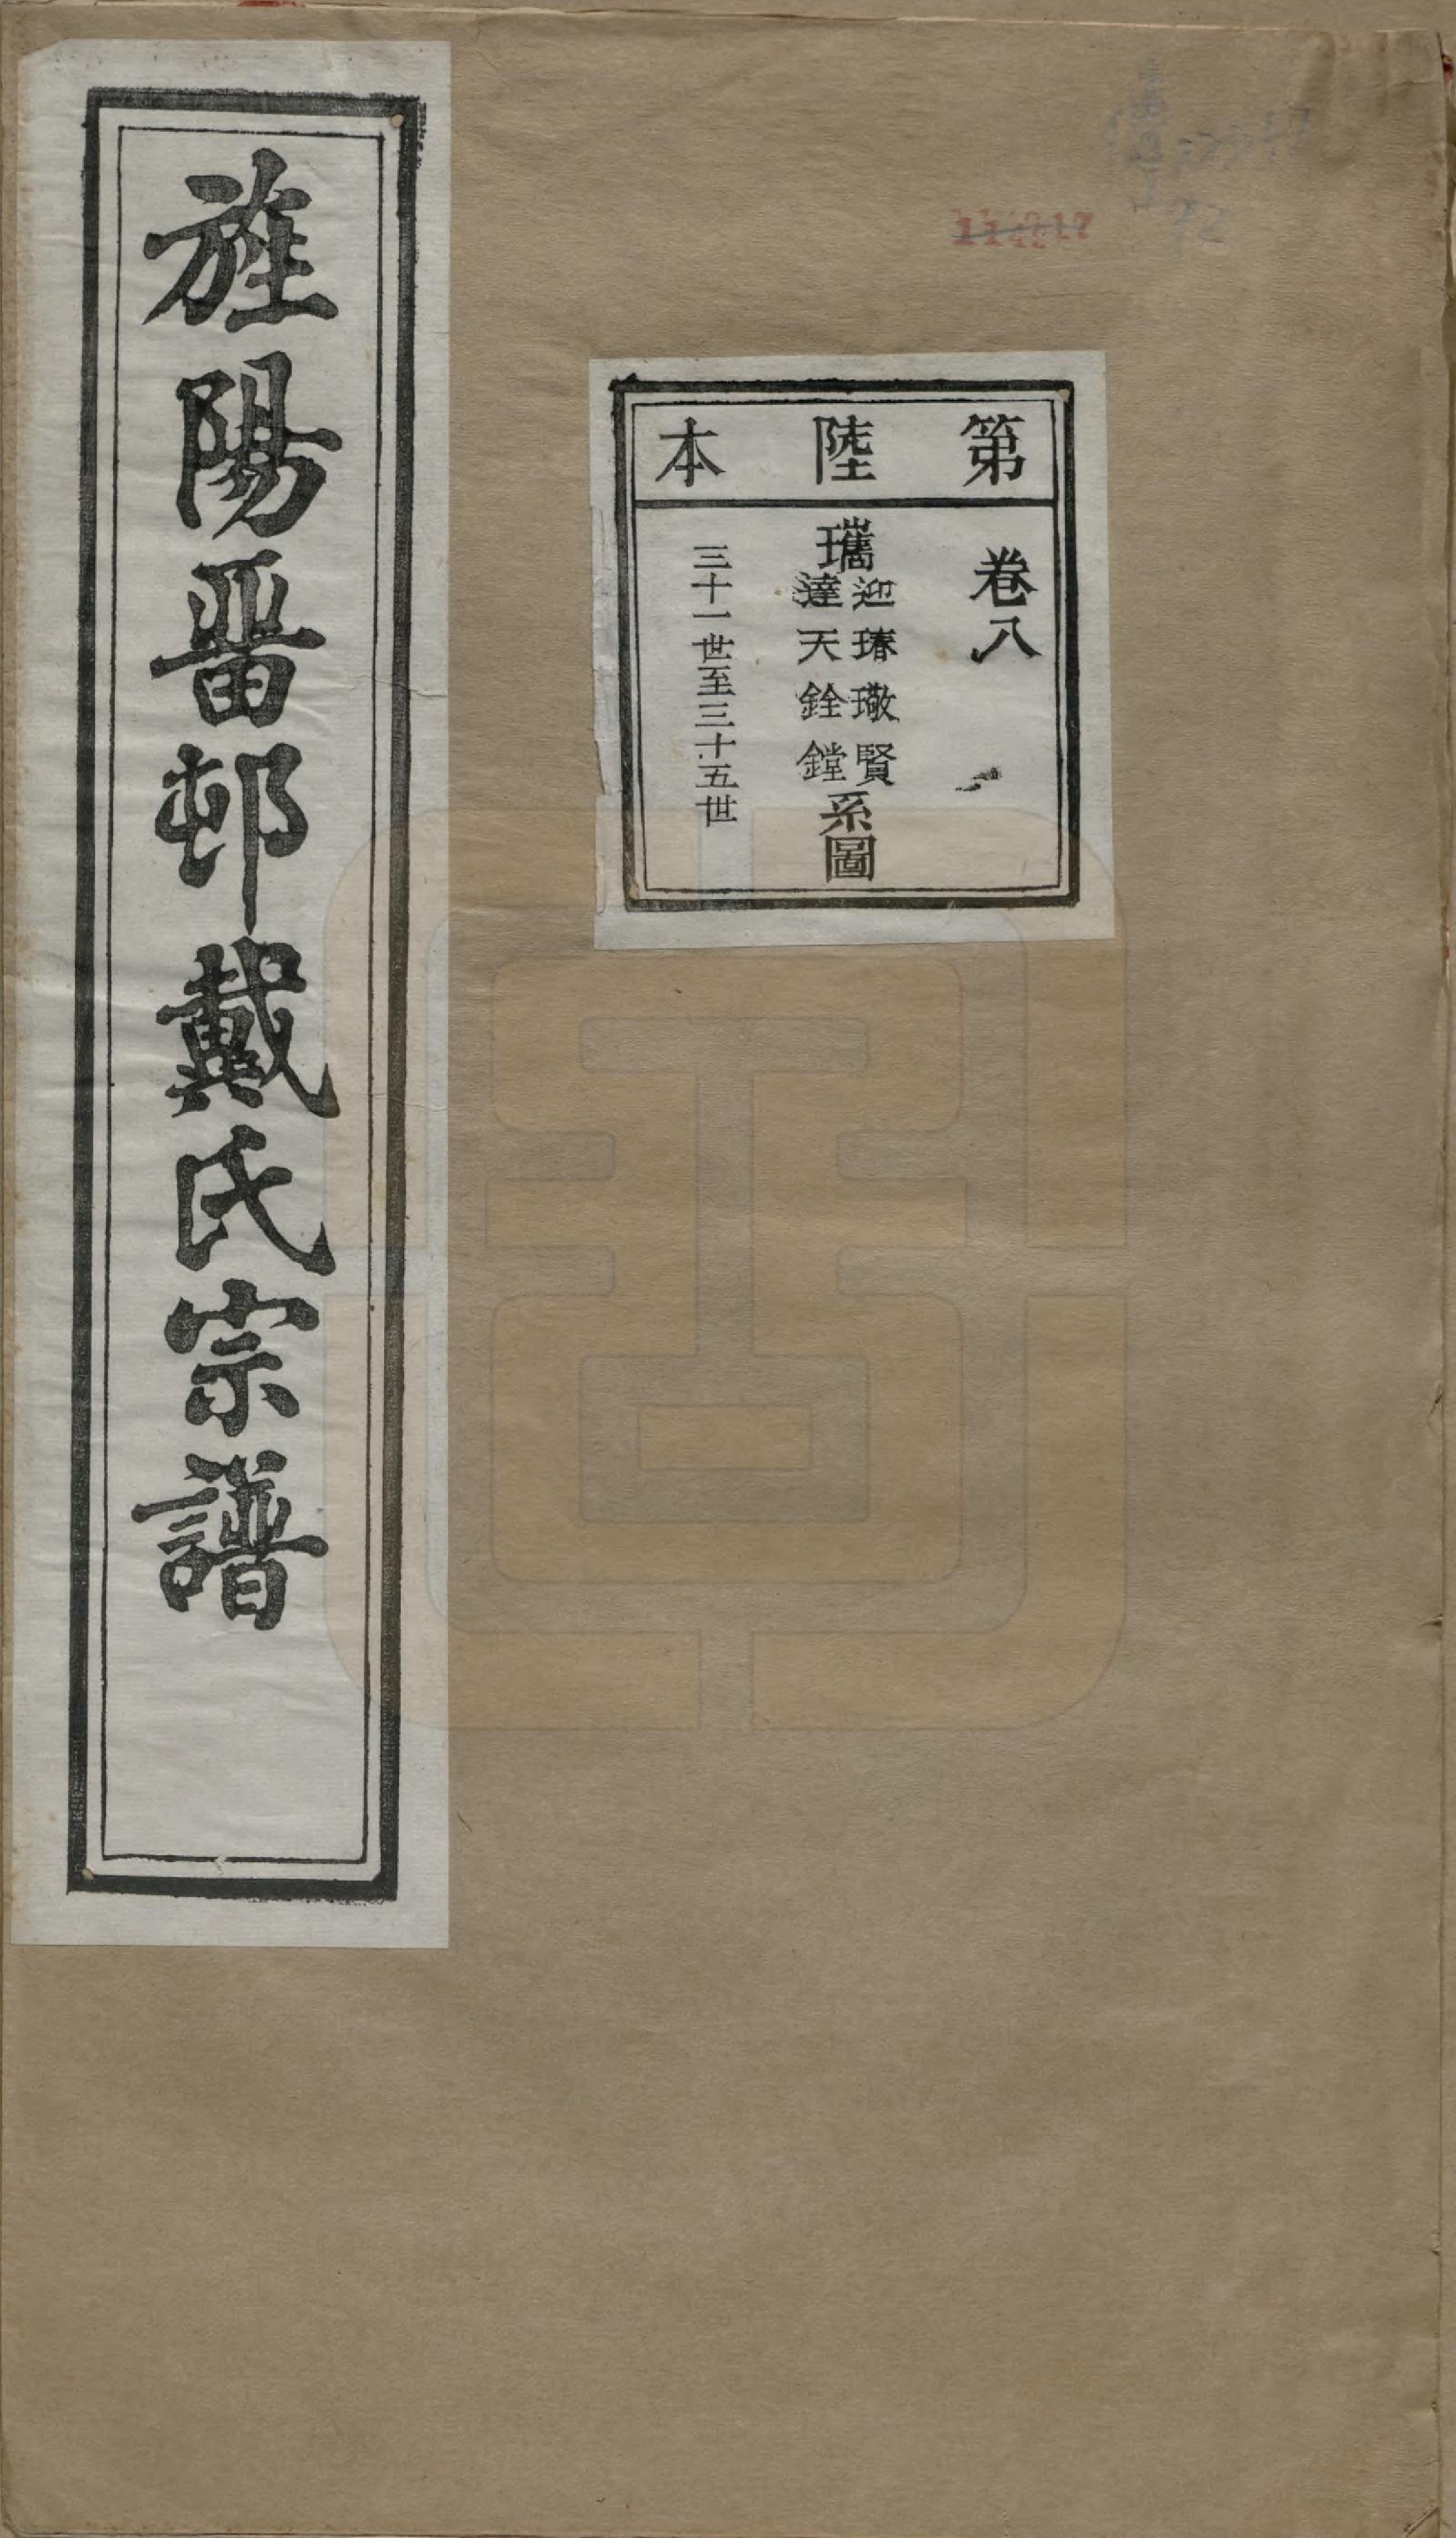 旌陽晋邨戴氏宗譜
第陸本
卷八
瓗
迎瑃璥賢
達天銓鏜
系圖
三十一世至三十五世